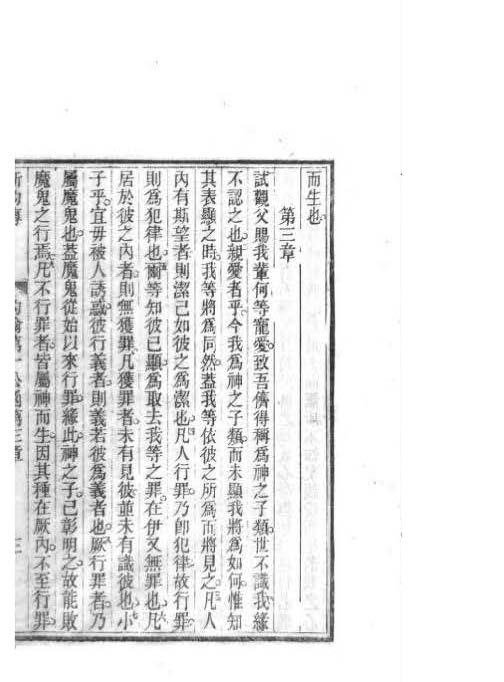 而生也
第三章
試觀父賜我輩何等寵愛致吾儕得稱爲神之子類世不識我緣
不認之也親愛者乎今我爲神之子類而未顯我將爲如何惟知
其表顯之時我等將爲同然葢我等依彼之所爲而將見之凡人
內有斯望者則潔己如彼之爲潔也凡人行罪乃卽犯律故行罪
則爲犯律也爾等知彼已顯爲取去我等之罪在伊又無罪也凡
居於彼之內者則無獲罪凡獲罪者未有見彼並未有識彼也小
子乎宜毋被人誘惑彼行義者則義若彼爲義者也厥行罪者乃
屬魔鬼也葢魔鬼從始以來行罪緣此神之子已彰明之故能敗
魔鬼之行焉凡不行罪者皆屬神而生因其種在厥內不至行罪
第三章 三